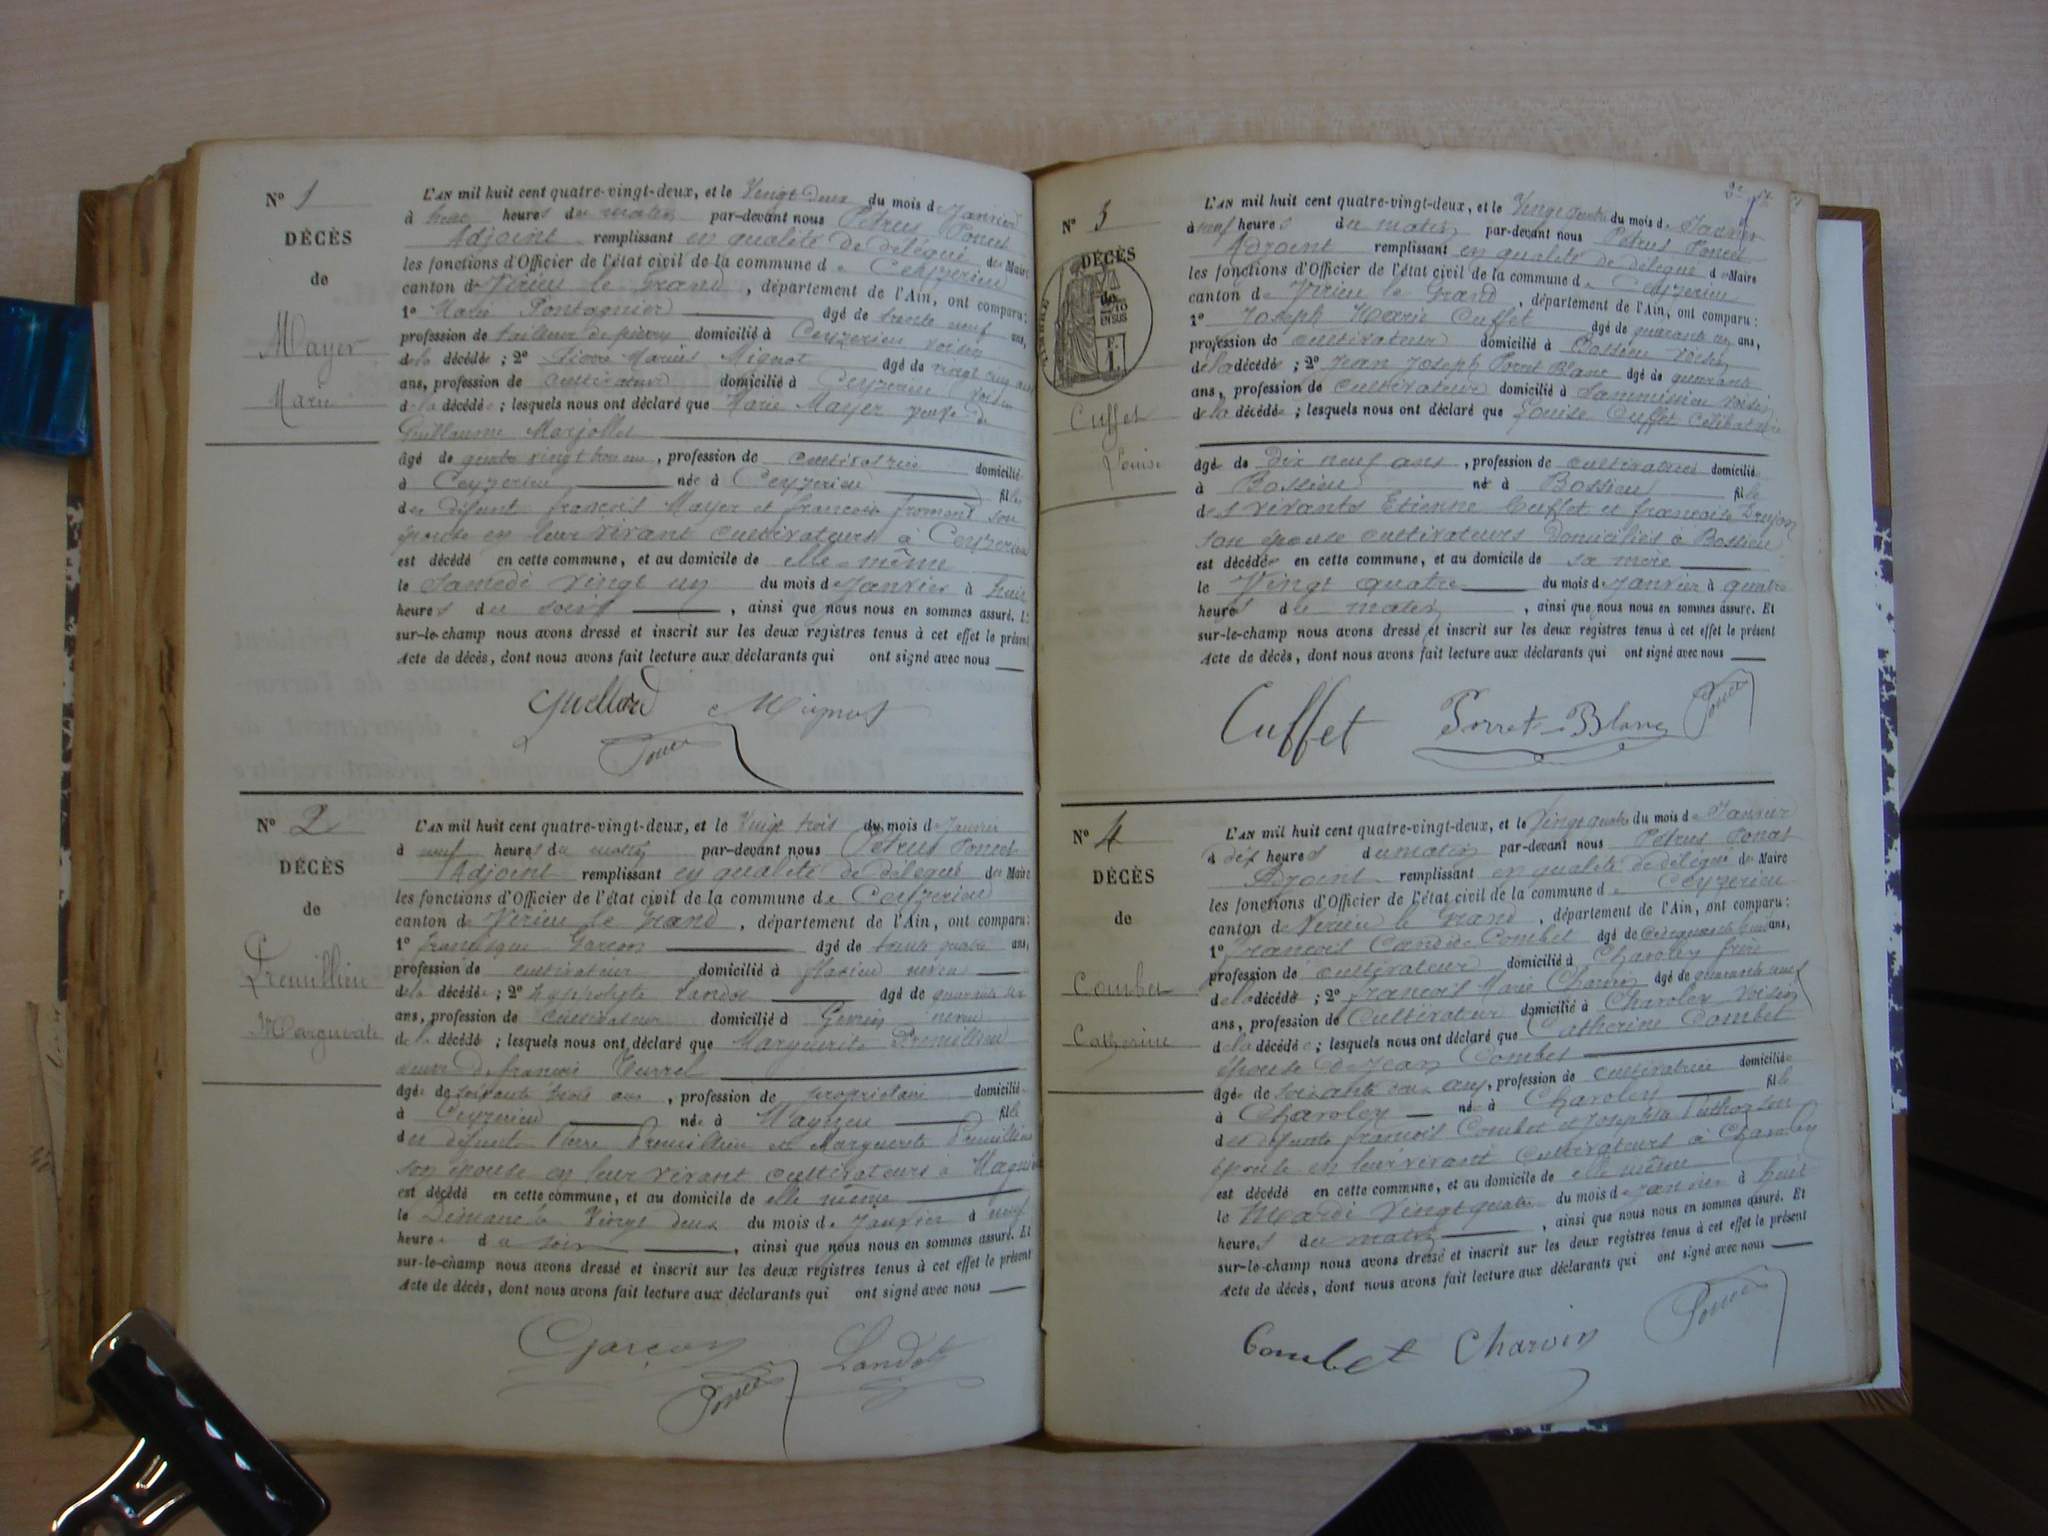 N° 1
DÉCÈS
de
Mayer
Marie
L'AN mil huit cent quatre-vingt-deux, et le Vingt Deux du mois de Janvier
à heures du matin par-devant nous Pétrus Poncet
Adjoint remplissant en qualité de délégué du Maire
les fonctions d'Officier de l'état civil de la commune de Ceyzerieu
canton de Virieu le Grand, département de l'Ain, ont comparu:
1° Marie Pontagnier âgé de trente neuf ans,
profession de tailleur de pierre domicilié à Ceyzerieu voisin
de la décédée; 2° Pierre Marius Mignot âgé de vingt cinq
ans, profession de cultivateur domicilié à Ceyzerieu voisin
de la décédée; lesquels nous ont déclaré que Marie Mayer veuve de
Guillaume Marjollet
âgé de quatre vingt ans, profession de cultivatrice domicilié
à Ceyzerieu née à Ceyzerieu fille
des défunt françois Mayer et francoise froment son
épouse en leur vivant cultivateurs à Ceyzerieu
est décédé en cette commune, et au domicile de elle même
le Samedi vingt un du mois de Janvier à huit
heures du soir, ainsi que nous nous en sommes assuré. Et
sur-le-champ nous avons dressé et inscrit sur les deux registres tenus à cet effet le présent
Acte de décès, dont nous avons fait lecture aux déclarants qui ont signé avec nous
Mignot
Poncet
N° 2
DÉCÈS
de
Premillieu
Marguerite
L'AN mil huit cent quatre-vingt-deux, et le Vingt trois du mois de Janvier
à neuf heures du matin par-devant nous Pétrus Poncet
Adjoint remplissant en qualité de délégué du Maire
les fonctions d'Officier de l'état civil de la commune de Ceyzerieu
canton de Virieu le Grand, département de l'Ain, ont comparu:
1° francisque Garçon âgé de trente quatre ans,
profession de cultivateur domicilié à flaxieu neveu
de la décédée; 2° hyppolyte Landot âgé de quarante
ans, profession de cultivateur domicilié à neveu
de la décédé; lesquels nous ont déclaré que Marguerite Premillieu
veuve de françois
âgée de soixante trois ans, profession de propriétaire domicilié
à Ceyzerieu née à Magnieu fille
des défunt Pierre Premillieu et Marguerite Premillieu
son épouse en leur vivant cultivateurs à Magnieu
est décédé en cette commune, et au domicile de elle même
le Dimanche Vingt deux du mois de Janvier à neuf
heures du soir, ainsi que nous nous en sommes assuré. Et
sur-le-champ nous avons dressé et inscrit sur les deux registres tenus à cet effet le présent
Acte de décès, dont nous avons fait lecture aux déclarants qui ont signé avec nous
Garçon Landot
Poncet
N° 3
DÉCÈS
de
Cuffet
Louise
L'AN mil huit cent quatre-vingt-deux, et le Vingt quatre du mois de Janvier
à neuf heures du matin par-devant nous Pétrus Poncet
Adjoint remplissant en qualité de délégué du Maire
les fonctions d'Officier de l'état civil de la commune de Ceyzerieu
canton de Virieu le Grand, département de l'Ain, ont comparu:
1° Joseph Marie Cuffet âgé de quarante un ans,
profession de cultivateur domicilié à Bossieu voisin
de la décédé; 2° Jean Joseph Porret Blanc âgé de quarante
ans, profession de cultivateur domicilié à Sammissieu voisin
de la décédée; lesquels nous ont déclaré que Louise Cuffet Célibataire
âgé de Dix neuf ans, profession de cultivatrice domicilié
à Bossieu né à Bossieu fille
des vivants Etienne Cuffet et françoise Drujon
son épouse cultivateurs Domiciliés à Bossieu
est décédée en cette commune, et au domicile de sa mère
le Vingt quatre du mois de Janvier à quatre
heures du matin, ainsi que nous nous en sommes assuré. Et
sur-le-champ nous avons dressé et inscrit sur les deux registres tenus à cet effet le présent
Acte de décès, dont nous avons fait lecture aux déclarants qui ont signé avec nous
Cuffet Porret-Blanc Poncet
N° 4
DÉCÈS
de
Combet
Catherine
L'AN mil huit cent quatre-vingt-deux, et le Vingt quatre du mois de Janvier
à dix heures du matin par-devant nous Pétrus Poncet
Adjoint remplissant en qualité de délégué du Maire
les fonctions d'Officier de l'état civil de la commune de Ceyzerieu
canton de Virieu le Grand, département de l'Ain, ont comparu:
1° François Combet âgé de cinquante huit ans,
profession de cultivateur domicilié à Charoley frère
de la décédée; 2° françois Marie Charvin âgé de quarante
ans, profession de Cultivateur domicilié à Charoley voisin
de la décédée; lesquels nous ont déclaré que Catherine Combet
épouse de Jean Combet
âgée de soixante ans, profession de cultivatrice domiciliée
à Charoley née à Charoley fille
des défunts françois Combet et Josephte son
épouse en leur vivant cultivateurs à Charoley
est décédé en cette commune, et au domicile de elle même
le Mardi Vingt quatre du mois de Janvier à huit
heures du matin, ainsi que nous nous en sommes assuré. Et
sur-le-champ nous avons dressé et inscrit sur les deux registres tenus à cet effet le présent
Acte de décès, dont nous avons fait lecture aux déclarants qui ont signé avec nous
Combet Charvin Poncet